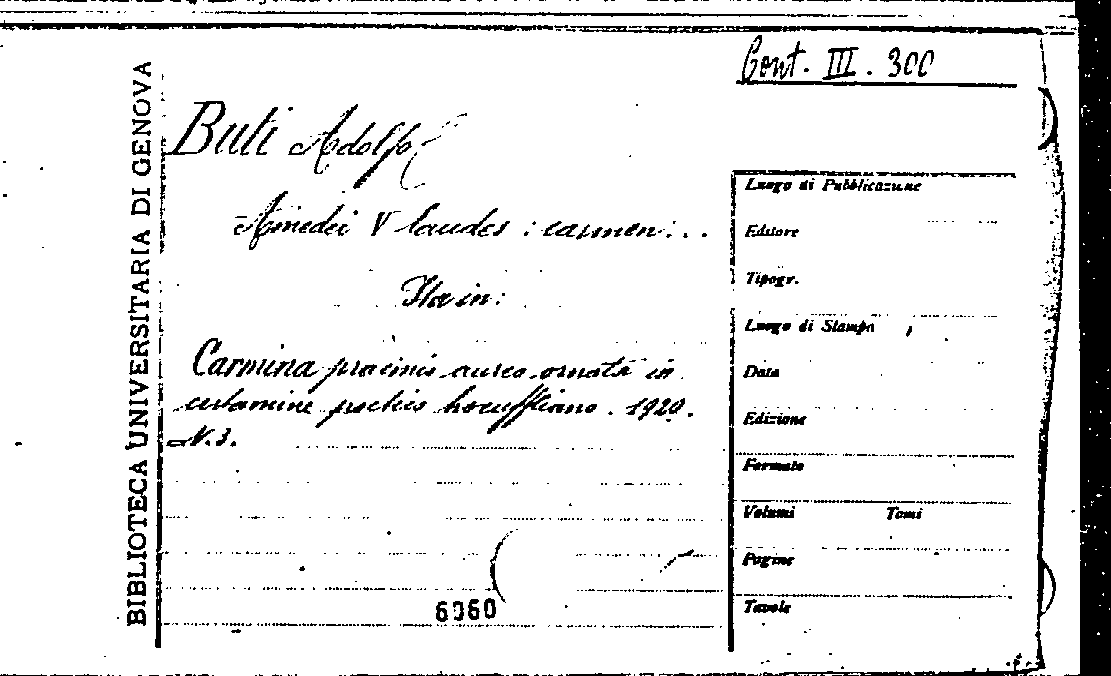 Cont. III. 300
BIBLIOTECA UNIVERSITARIA DI GENOVA
Buti Adolfo
Amedei V laudes : carmen : . .
Sta in :
Carmina praemio aureo ornata in
certamine poetico hoeufftiano . 1920 .
N. 3.
6060
Luogo di Pubblicazione
Editore
Tipogr.
Luogo di Stampa
Data
Edizione
Formato
Volumi Tomi
Pagine
Tavole